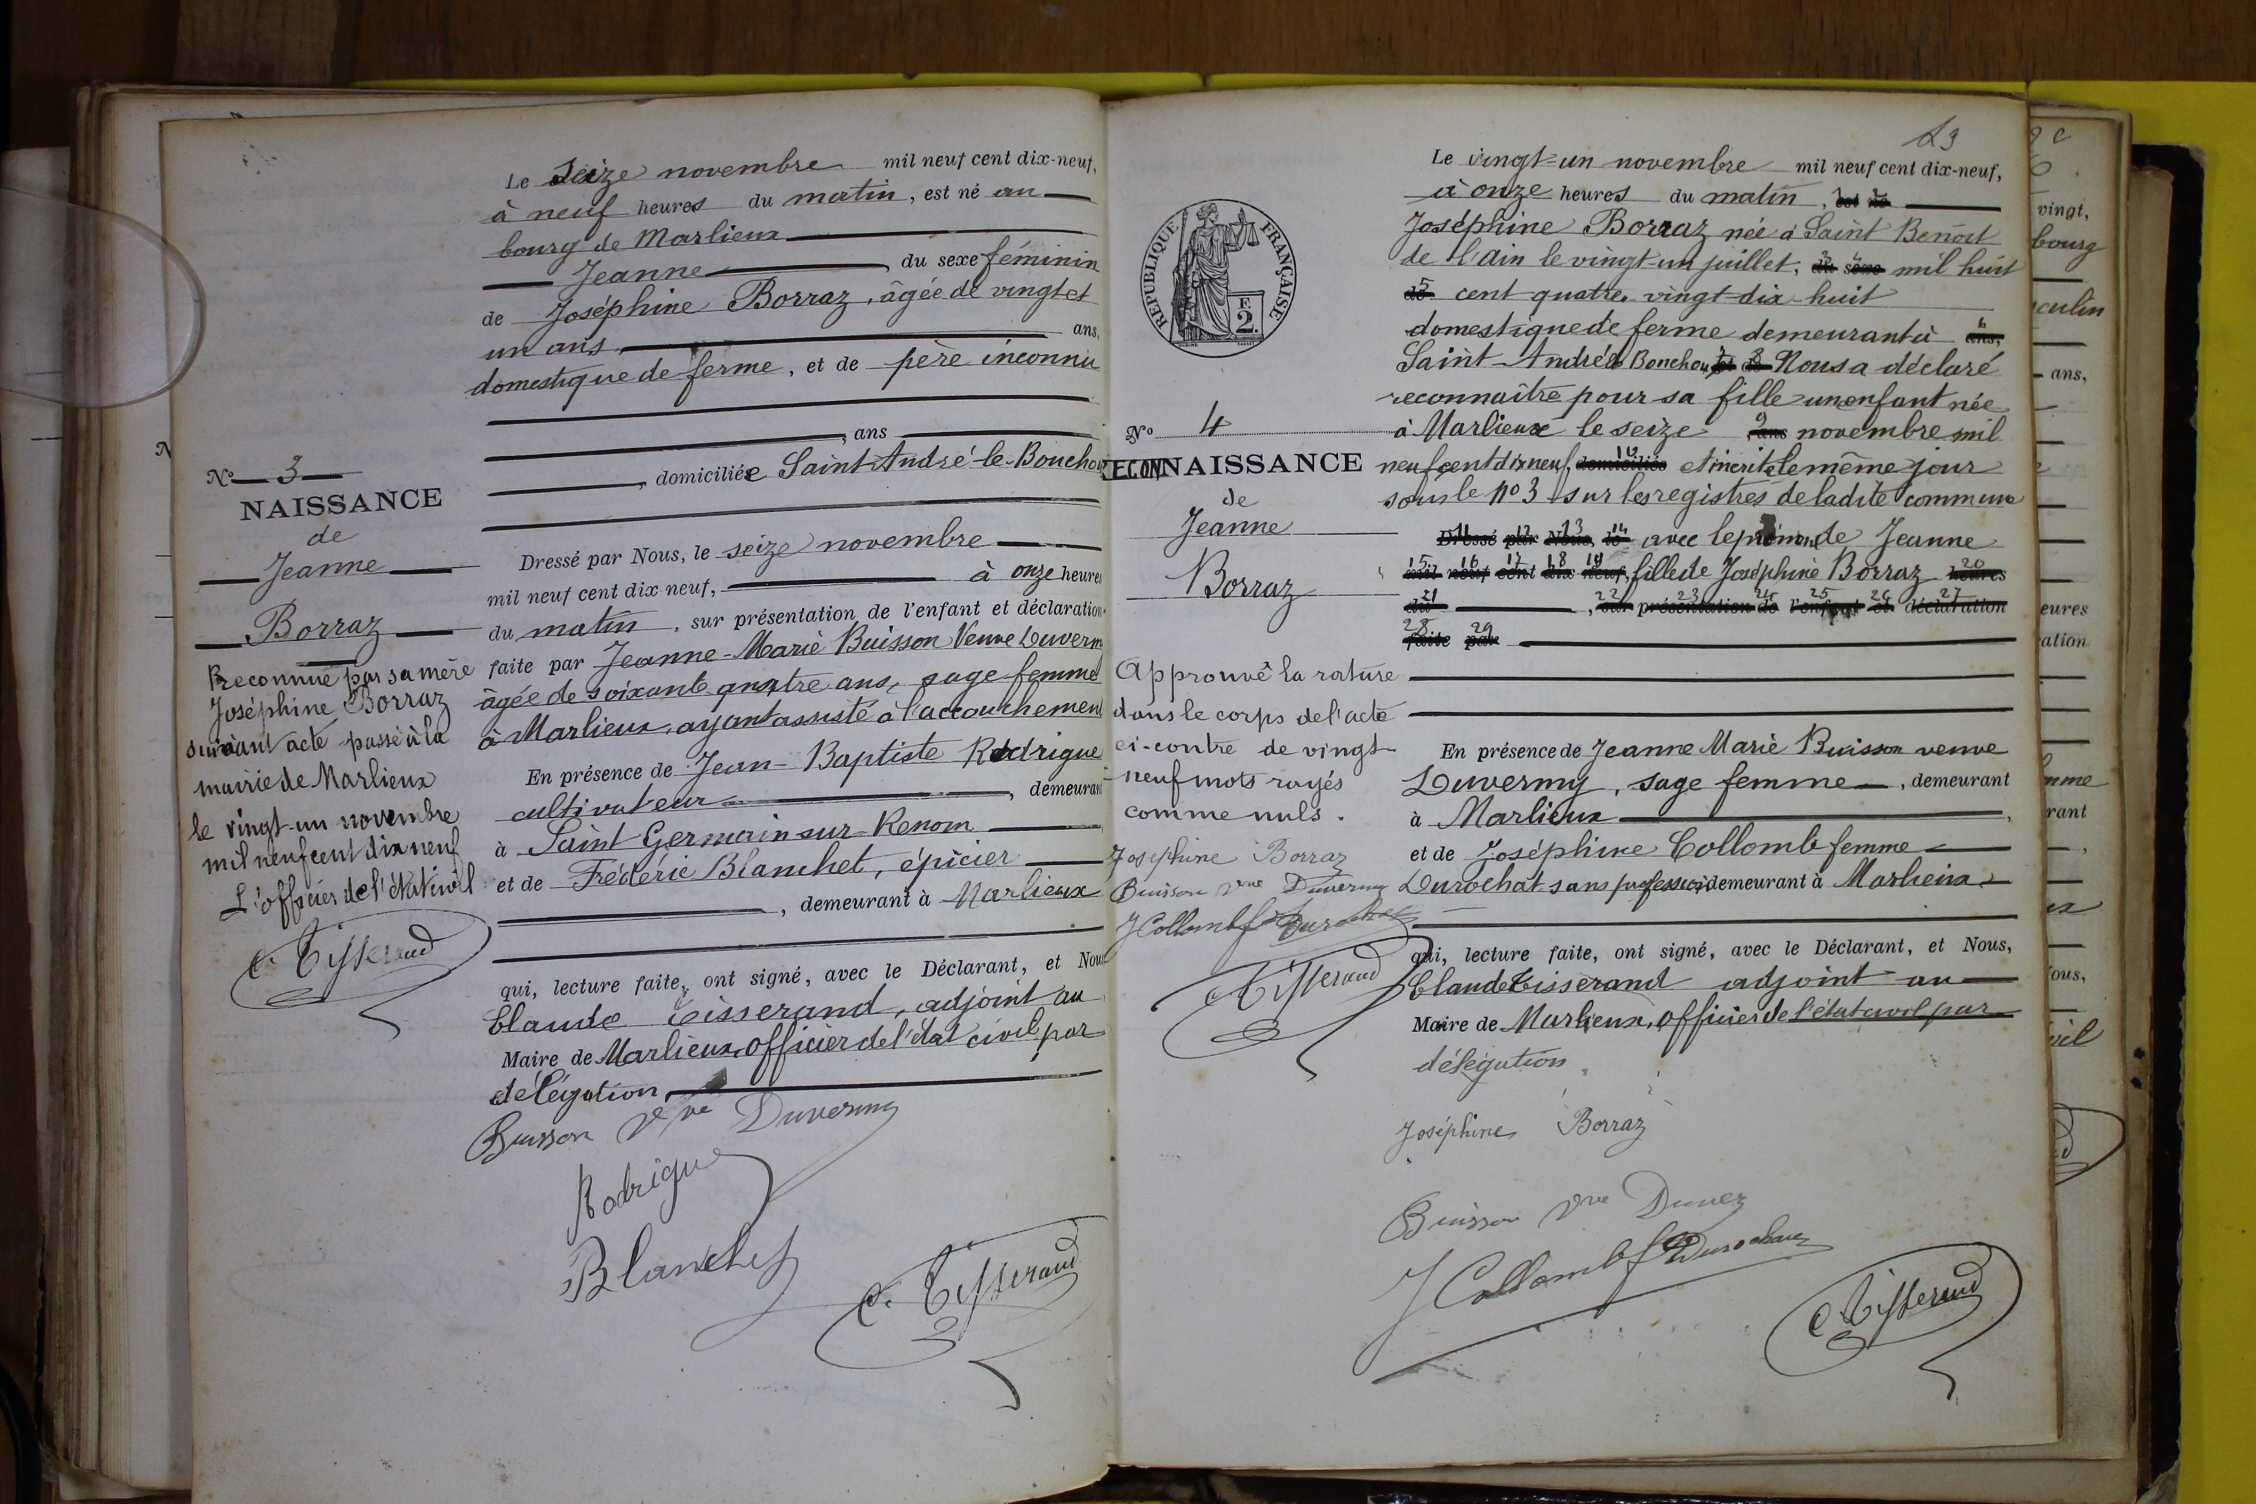 Le Seize novembre mil neuf cent dix-neuf,
à neuf heures du matin, est né au
bourg de Marlieux
Jeanne, du sexe féminin
de Joséphine Borraz, âgée de vingt et
un ans ans,
domestique de ferme, et de père inconnu
, ans
, domiciliée Saint-André-le-Bouchoux
Dressé par Nous, le seize novembre
mil neuf cent dix neuf, à onze heures
du matin, sur présentation de l'enfant et déclaration
faite par Jeanne-Marie Buisson Veuve Duverm
âgée de soixante quatre ans, sage femme
à Marlieux, ayant assisté à l'accouchement
En présence de Jean-Baptiste Rodrigue
cultivateur, demeurant
à Saint Germain sur Renom
et de Frédéric Blanchet, épicier
, demeurant à Marlieux
qui, lecture faite, ont signé, avec le Déclarant, et Nous
Claude Tisserand, adjoint au
Maire de Marlieux, officier de l'état civil par
délégation
Buisson Vve Duvermy
Rodrigue
Blanchet
C. Tisserand
N° 3
NAISSANCE
de
Jeanne
Borraz
Reconnue par sa mère
Joséphine Borraz
suivant acte passé à la
mairie de Marlieux
le vingt-un novembre
mil neuf cent dix neuf
L'officier de l'état civil
C. Tisserand
23
RÉPUBLIQUE FRANÇAISE
F.
2.
N° 4
RECONNAISSANCE
de
Jeanne
Borraz
Approuvé la rature
dans le corps de l'acte
ci-contre de vingt-
neuf mots rayés
comme nuls.
Joséphine Borraz
Buisson Vve Duvermy
J Collomb fe Durochat
C Tisserand
Le vingt-un novembre mil neuf cent dix-neuf,
à onze heures du matin, 1 est 2 né
Joséphine Borraz née à Saint Benoit
de l'Ain le vingt-un juillet, 3 du 4 sexe mil huit
5 de cent quatre vingt-dix-huit
domestique de ferme demeurant à 6 ans,
Saint-André le Bouchoux 7 et 8 de Nous a déclaré
reconnaître pour sa fille un enfant née
à Marlieux le seize 9 , ans novembre mil
neuf cent dix neuf, 10 domiciliés et inscrite le même jour
sous le n° 3 sur les registres de ladite commune
11 Dressé 12 par 13 Nous, 14 le avec le prénom de Jeanne
15 mil 16 neuf 17 cent 18 dix 19 neuf, fille de Joséphine Borraz 20 heures
21 du, 22 sur 23 présentation 24 de 25 l'enfant 26 et 27 déclaration
28 faite 29 par
En présence de Jeanne Marie Buisson veuve
Duvermy, sage femme, demeurant
à Marlieux,
et de Joséphine Collomb femme
Durochat sans profession, demeurant à Marlieux
qui, lecture faite, ont signé, avec le Déclarant, et Nous,
Claude Tisserand adjoint au
Maire de Marlieux, officier de l'état civil par
délégation
Joséphine Borraz
Buisson Vve
J Collomb fe Durochat
C Tisserand
vingt,
bourg
culin
ans,
eures
ation
mme
rant
ous,
vil